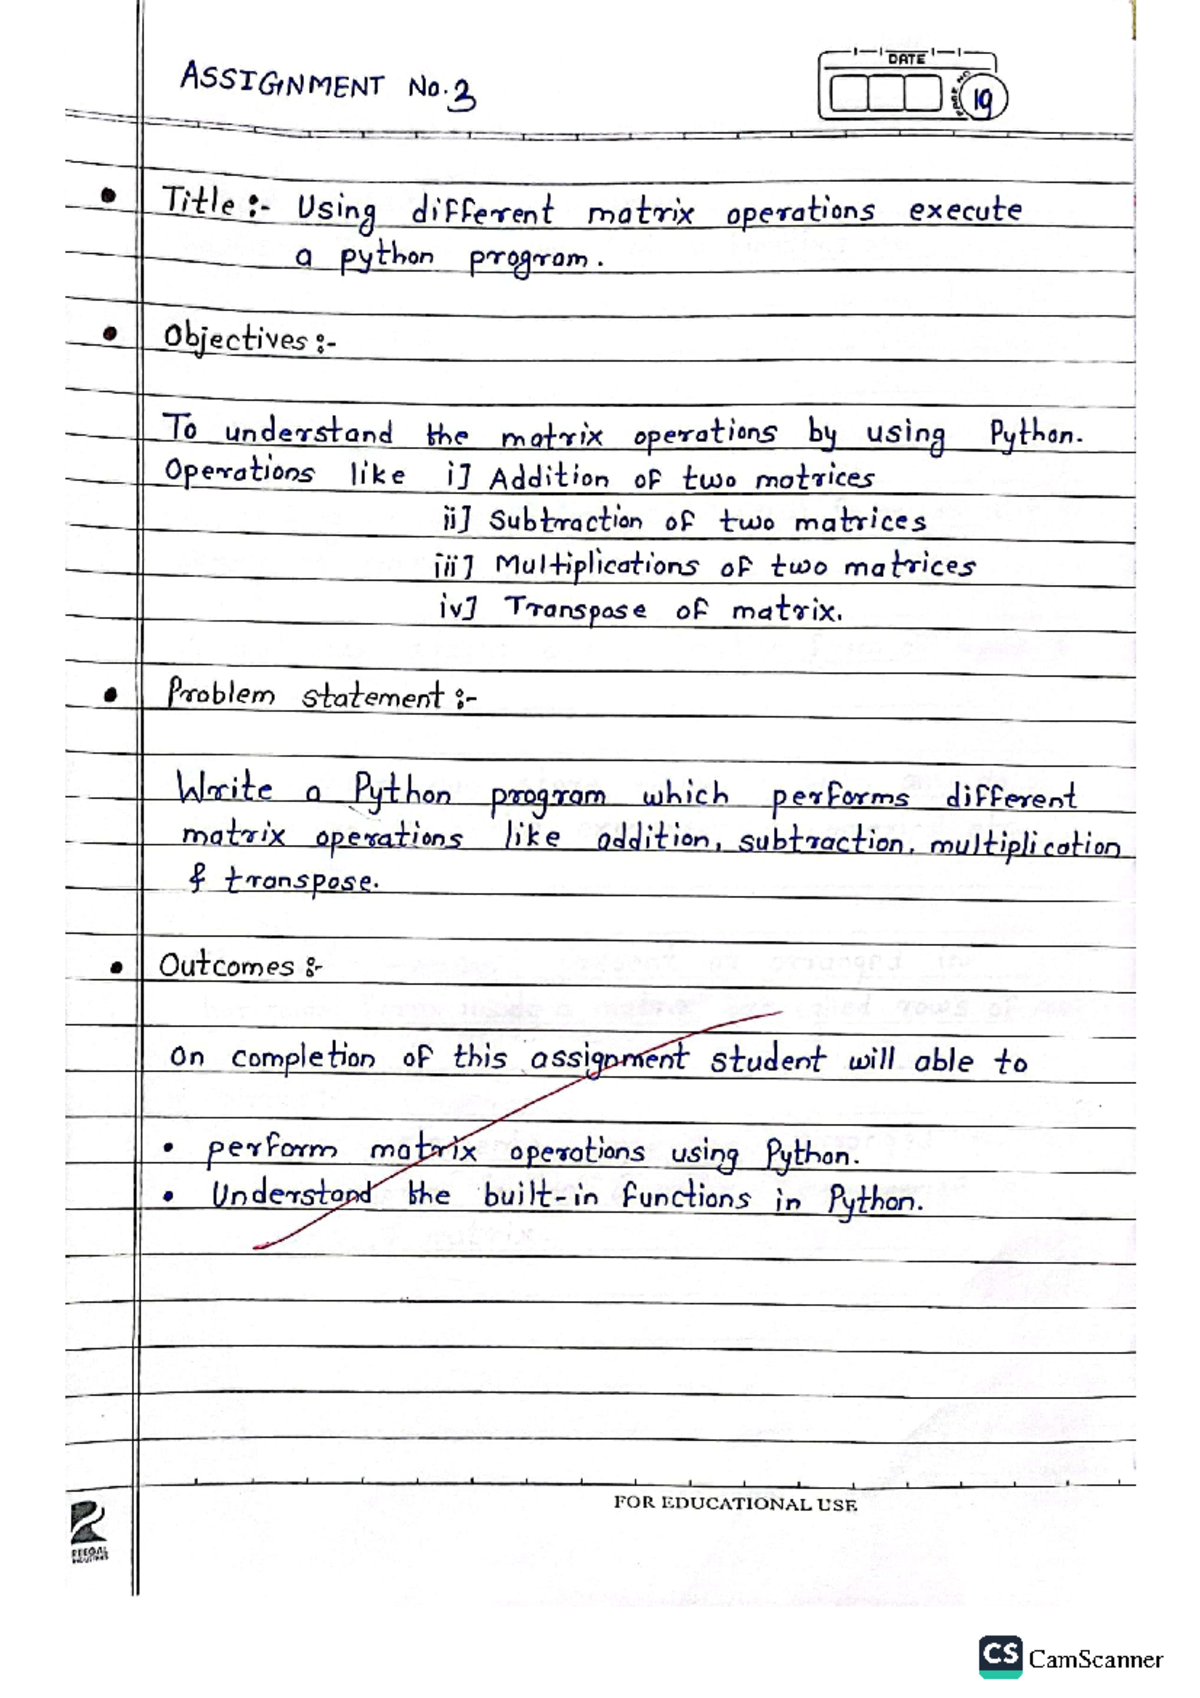 ASSIGNMENT No.3
DATE
PAGE NO
19
Title :- Using different matrix operations execute
a python program.
Objectives :-
To understand the matrix operations by using Python.
Operations like i] Addition of two matrices
ii] Subtraction of two matrices
iii] Multiplications of two matrices
iv] Transpose of matrix.
Problem statement :-
Write a Python program which performs different
matrix operations like addition, subtraction, multiplication
& transpose.
Outcomes :-
On completion of this assignment student will able to
• perform matrix operations using Python.
• Understand the built-in functions in Python.
FOR EDUCATIONAL USE
CS CamScanner